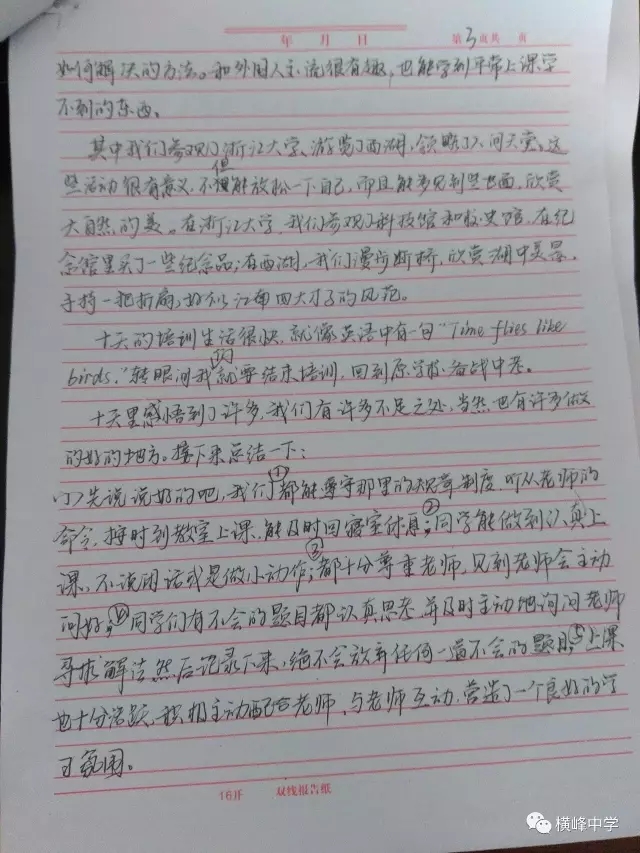 年 月 日 第3页共 页
如何解决的方法。和外国人交流很有趣,也能学到平常上课学
不到的东西。
其中我们参观了浙江大学、游览了西湖,领略了人间天堂、这
些活动很有意义,不但能放松一下自己,而且能多见到些世面,欣赏
大自然的美。在浙江大学,我们参观了科技馆和校史馆,在纪
念馆里买了一些纪念品;在西湖,我们漫步断桥,欣赏湖中美景,
手持一把折扇,好似江南四大才子的风范。
十天的培训生活很快,就像英语中有一句"Time flies like
birds."转眼间我们就要结束培训,回到原学校备战中考。
十天里感悟到了许多,我们有许多不足之处,当然也有许多做
的好的地方。接下来总结一下:
(1)先说说好的吧,我们①都能遵守那里的规章制度,听从老师的
命令,按时到教室上课,能及时回寝室休息;②同学能做到认真上
课,不说闲话或是做小动作;③都十分尊重老师,见到老师会主动
问好;④同学们有不会的题目都认真思考,并及时主动地询问老师
寻求解法然后记录下来,绝不会放弃任何一道不会的题目;⑤上课
也十分活跃,积极主动配合老师,与老师互动,营造了一个良好的学
习氛围。
16开 双线报告纸
横峰中学